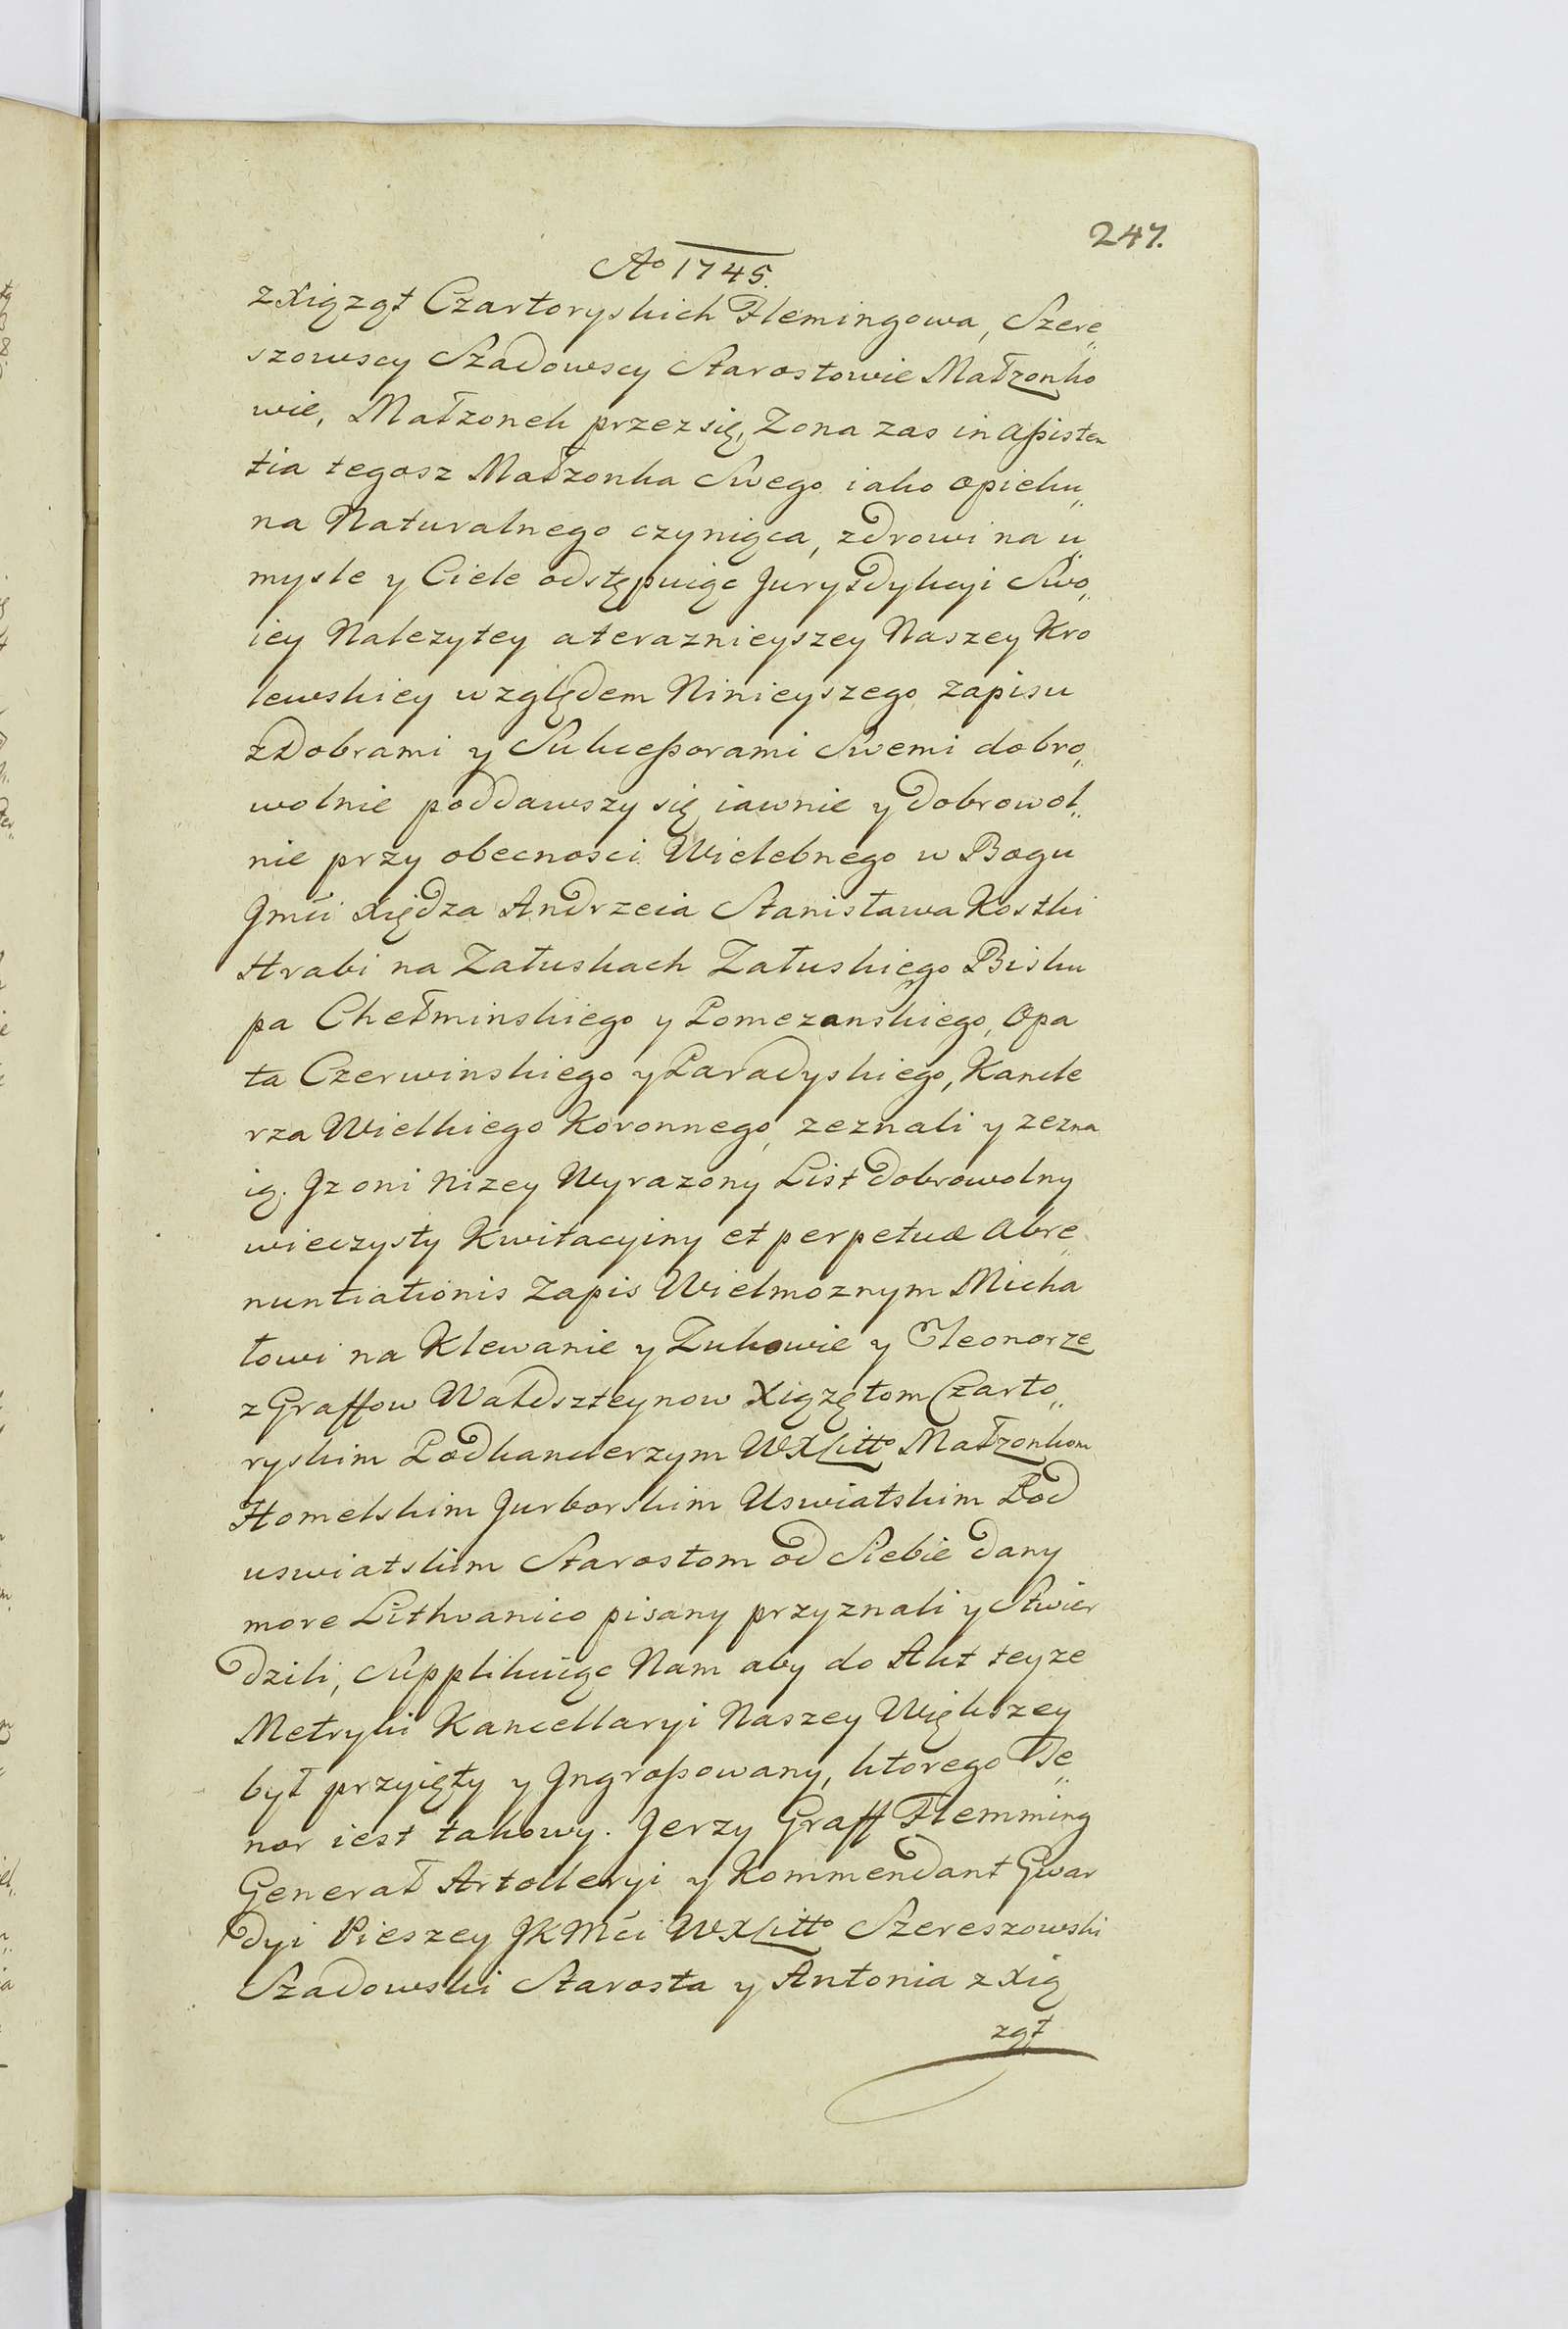 247.
Ao 1745.
z Xiążąt Czartoryskich Flemingowa, Szere„
szowscy Szadowscy Starostowie Małzonko
wie, Małzonek przez się, Zona zas in aßisten
tia tegosz Małzonka Swego iako opieku„
na Naturalnego czyniąca, zdrowi na u„
mysle y Ciele odstępuiąc Jurysdykcyi Swo„
iey Nalezytey a teraznieyszey Naszey Kro
lewskiey względem Ninieyszego zapisu
z Dobrami y Sukceßorami Swemi dobro„
wolnie poddawszy się iawnie y dobrowol„
nie przy obecnosci Wielebnego w Bogu
Jmći Xiędza Andrzeia Stanisława Kostki
Hrabi na Załuskach Załuskiego Bisku
pa Chełminskiego y Pomezanskiego, Opa
ta Czerwinskiego y Paradyskiego, Kancle
rza Wielkiego Koronnego, zeznali y zezna
ią. Jz oni nizey Wyrazony List dobrowolny
wieczysty Kwitacyiny et perpetuæ Abre„
nuntiationis Zapis Wielmoznym Micha
łowi na Klewanie y Zukowie y Eleonorze
z Graffow Waldszteynow Xiążętom Czarto„
ryskim Podkanclerzym WXLitto Małzonkom
Homelskim Jurborskim Uswiatskim Pod
uswiatskim Starostom od Siebie dany
more Lithvanico pisany przyznali y Stwier
dzili, Supplikuiąc Nam aby do Akt teyze
Metryki Kancellaryi Naszey Większey
był przyięty y Jngroßowany, ktorego Te„
nor iest takowy. Jerzy Graff Flemming
Generał Artolleryi y Kommendant Gwar
dyi Pieszey JKMći WXLitto Szereszowski
Szadowski Starosta y Antonia z Xią
ząt